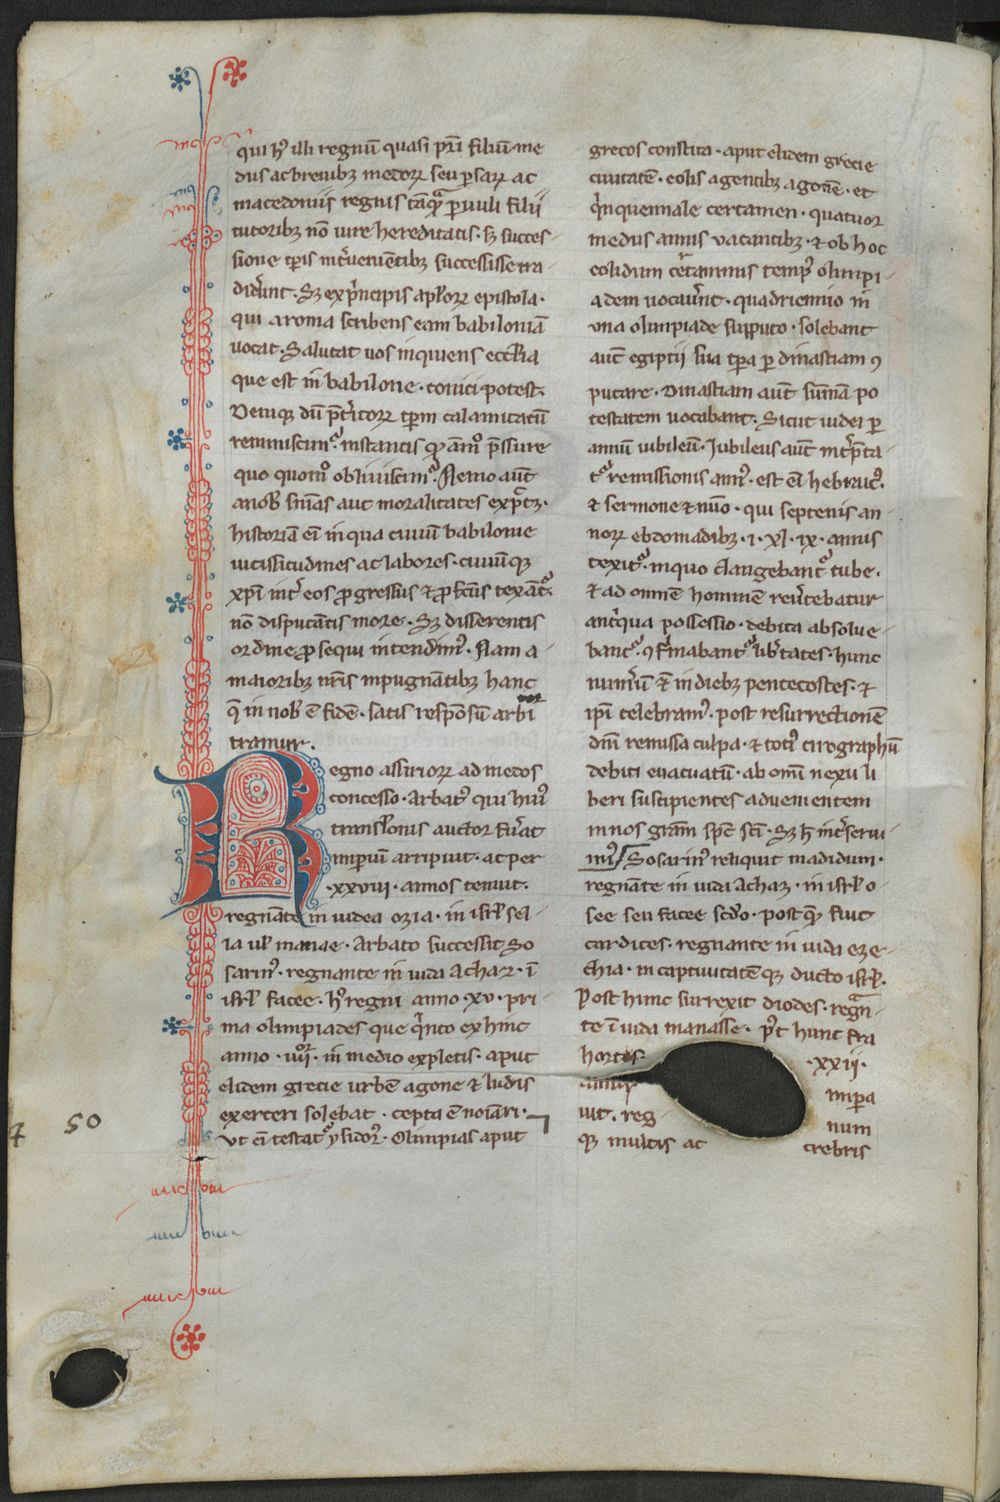 qui hͦ illi regnū quasi pr̄i filiū me
dus ac breuibꝫ medoꝝ seu ꝑsaꝝ ac
macedoniis regnis tāqᷓ ꝑuuli filii
tutoribꝫ nō iure hereditatis · sꝫ succes-
sione tꝑis int̾uenientibꝫ successisse tra-
did̾unt · Sꝫ ex pͥncipis apl̾oꝝ epistola ·
qui a roma scribens eam babiloniā
uocat · Salutat uos inquiens eccl̾ia
que est in babilone · conici potest ·
Deniqꝫ dū p̄t̾itoꝝ tꝑm calamitatū
reminiscimͬ instantis
quo quomͦ obliuiscimͬ · Nemo aūt
a nob̾ sn̄ias aut moralitates expͤctꝫ ·
historiam eī in qua ciuiū babilonie
uicissitudines ac labores · ciuiūqꝫ
xp̄i int̾ eos ꝓgressus & ꝓfc̄us texāt̾ᷣ
nō disputātis more · Sꝫ disserentis
ordine ꝓsequi intendimꝰ · Nam a
maioribꝫ nr̄is inpugnātibꝫ hanc
q̄ in nob̾ ē fidē · satis respōsū arbi
tramur ·
Regno assirioꝝ ad medos
concesso · Arbatꝰ qui huiꝰ
transl̾onis auctor fu̾at
imꝑiū arripuit · ac per
· xxviii · annos tenuit ·
regnāte in iudea ozia · in isrl̾ sel-
la ul̾ manae · Arbato successit So
sarmꝰ · regnante in iuda Achaz · ī
isrl̾ facee · hꝰ regni anno · xv · pri-
ma olimpiades que qͥnto ex hinc
anno · iiiior · in medio expletis · aput
elidem grecie urbē agone & ludis
exerceri solebat · cepta ē noīari ·
Vt eī testatͬ ysidorꝰ · Olimpias aput
grecos constita · aput elidem grecie
ciuitatē · eolis agentibꝫ agonē · et
qͥnquennale certamen · quatuor
mediis annis uacantibꝫ · & ob hoc
eolidum c̾taminis tempꝰ olimpi-
adem uocau̾nt · quadriennio in
una olimpiade supputo · solebant
aut̄ egiptii sua tꝑa ꝑ dinastiam ꝯ
putare · Dinastiam aut̄ sum̄ā po
testatem uocabant · Sicut iudei ꝑ
annū iubileū · Iubileus aūt int̾p̄ta-
tͬ remissionis annꝰ · est eī hebraicꝰ ·
& sermone & nūo · qui septenis an-
noꝝ ebdomadibꝫ · i · xl · ix · annis
texitͬ · in quo clangebantͬ tube ·
& ad omnē hominē reu̾tebatur
antiqua possessio · debita absolue-
bantͬ · ꝯfirmabantͬ lib̾tates · hunc
num̾ū & in diebꝫ pentecostes · &
ip̄i celebramꝰ · post resurrectionē
dn̄i remissa culpa · & totiꝰ cirographū
debiti euacuatū · ab omī nexu li
beri suscipientes aduenientem
in nos gr̄am sp̄c sc̄i · Sꝫ h̄ int̾serui-
mꝰ / Sosarmꝰ reliquit madidum ·
regnāte in iuda Achaz · in isrl̾ o-
see seu facee sc̄do · post quē fuit
cardices · regnante in iuda eze-
chia · in captiuitatēqꝫ ducto isrl̾ ·
Post hunc surrexit diodes · regnā-
te ī iuda manasse · p̾t hunc fra
hortes · · xxii ·
annis imꝑa
uit · reg num
qꝫ multis ac crebris
50